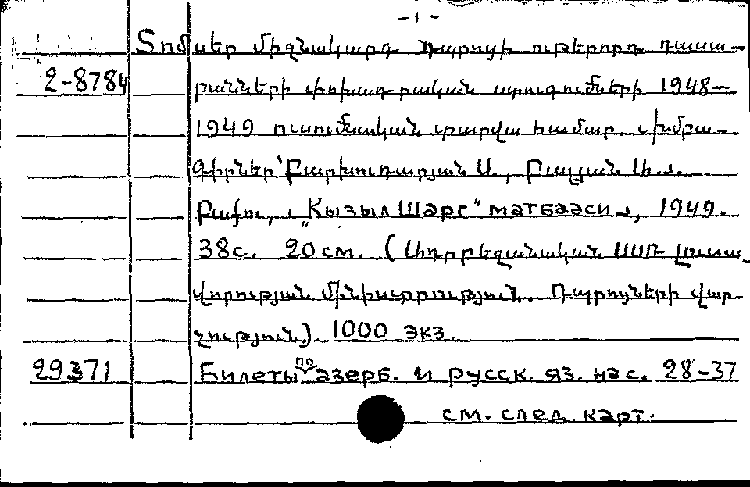 - 1 -
Տոմսեր միջնակարգ դպրոցի ութերորդ դասա-
2-8784 րանների փոխադրական ստուգումների 1948-
1949 ուսումնական տարվա համար. Խմբա-
գիրներ՝ Բարխուդարյան Ս., Բալյան
Բաքու, „Кызыл Шәрг" матбааси, 1949.
38с. 20см. (Ադրբեջանական ՍՍՌ լուսա-
վորության մինիստրություն. Դպրոցների վար-
չություն). 1000 экз.
29371 Билеты по азерб. и русск. яз. на с. 28-37
см. след. карт.